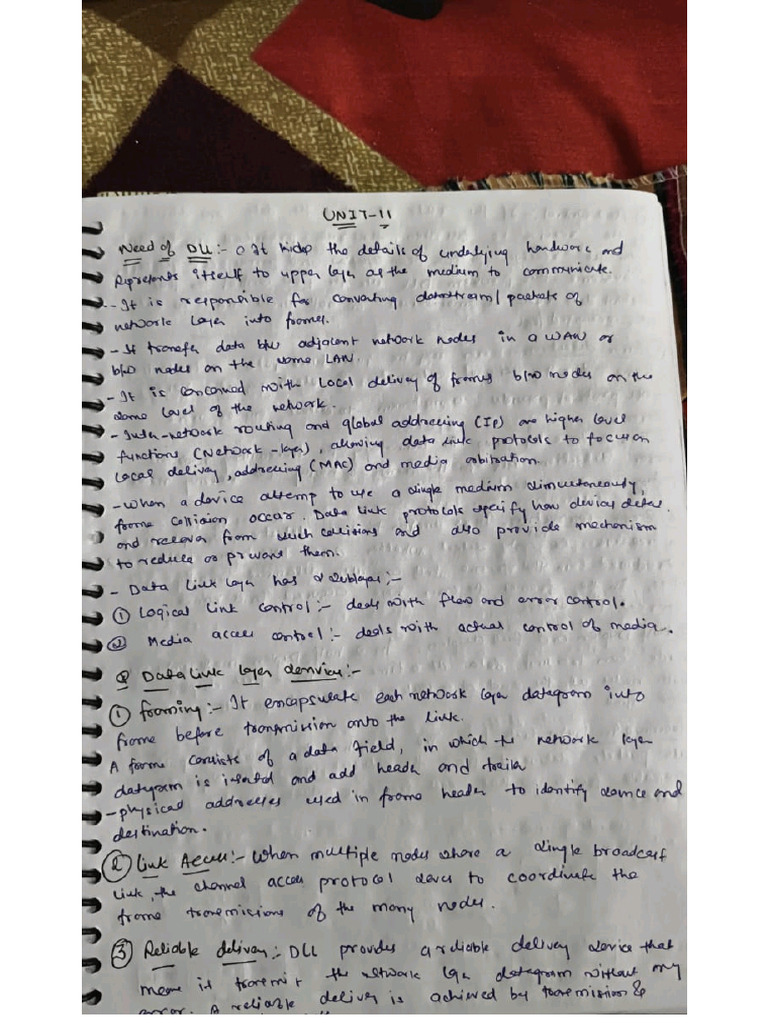 UNIT-11
Need of DLL:- o It hides the details of underlying hardware and
Represents itself to upper layer as the medium to communicate.
- It is responsible for converting datastream/packets of
network Layer into frames.
- It transfer data b/w adjacent network nodes in a WAN or
b/w nodes on the same LAN.
- It is concerned with Local delivery of frames b/w nodes on the
same level of the network.
- Inter-network routing and global addressing (IP) are higher level
functions (Network-layer), allowing data link protocols to focus on
Local delivery, addressing (MAC) and media arbitration.
- When a device attemp to use a single medium simultaneously,
frame collision occur. Data link protocols specify how devices detect
and recover from such collisions and also provide mechanism
to reduce or prevent them.
- Data Link Layer has 2 sublayer:-
① Logical Link Control:- deals with flow and error control.
② Media access control:- deals with actual control of media.
Q Data Link layer services:-
① framing:- It encapsulate each network layer datagram into
frame before transmission onto the link.
A frame consists of a data field, in which the network layer
datagram is inserted and add header and trailer
- physical addresses used in frame header to identify source and
destination.
② Link Access:- When multiple nodes share a single broadcast
link, the channel access protocol serves to coordinate the
frame transmissions of the many nodes.
③ Reliable delivery:- DLL provides a reliable delivery service that
means it transmit the network layer datagram without any
error. A reliable delivery is achieved by transmission &